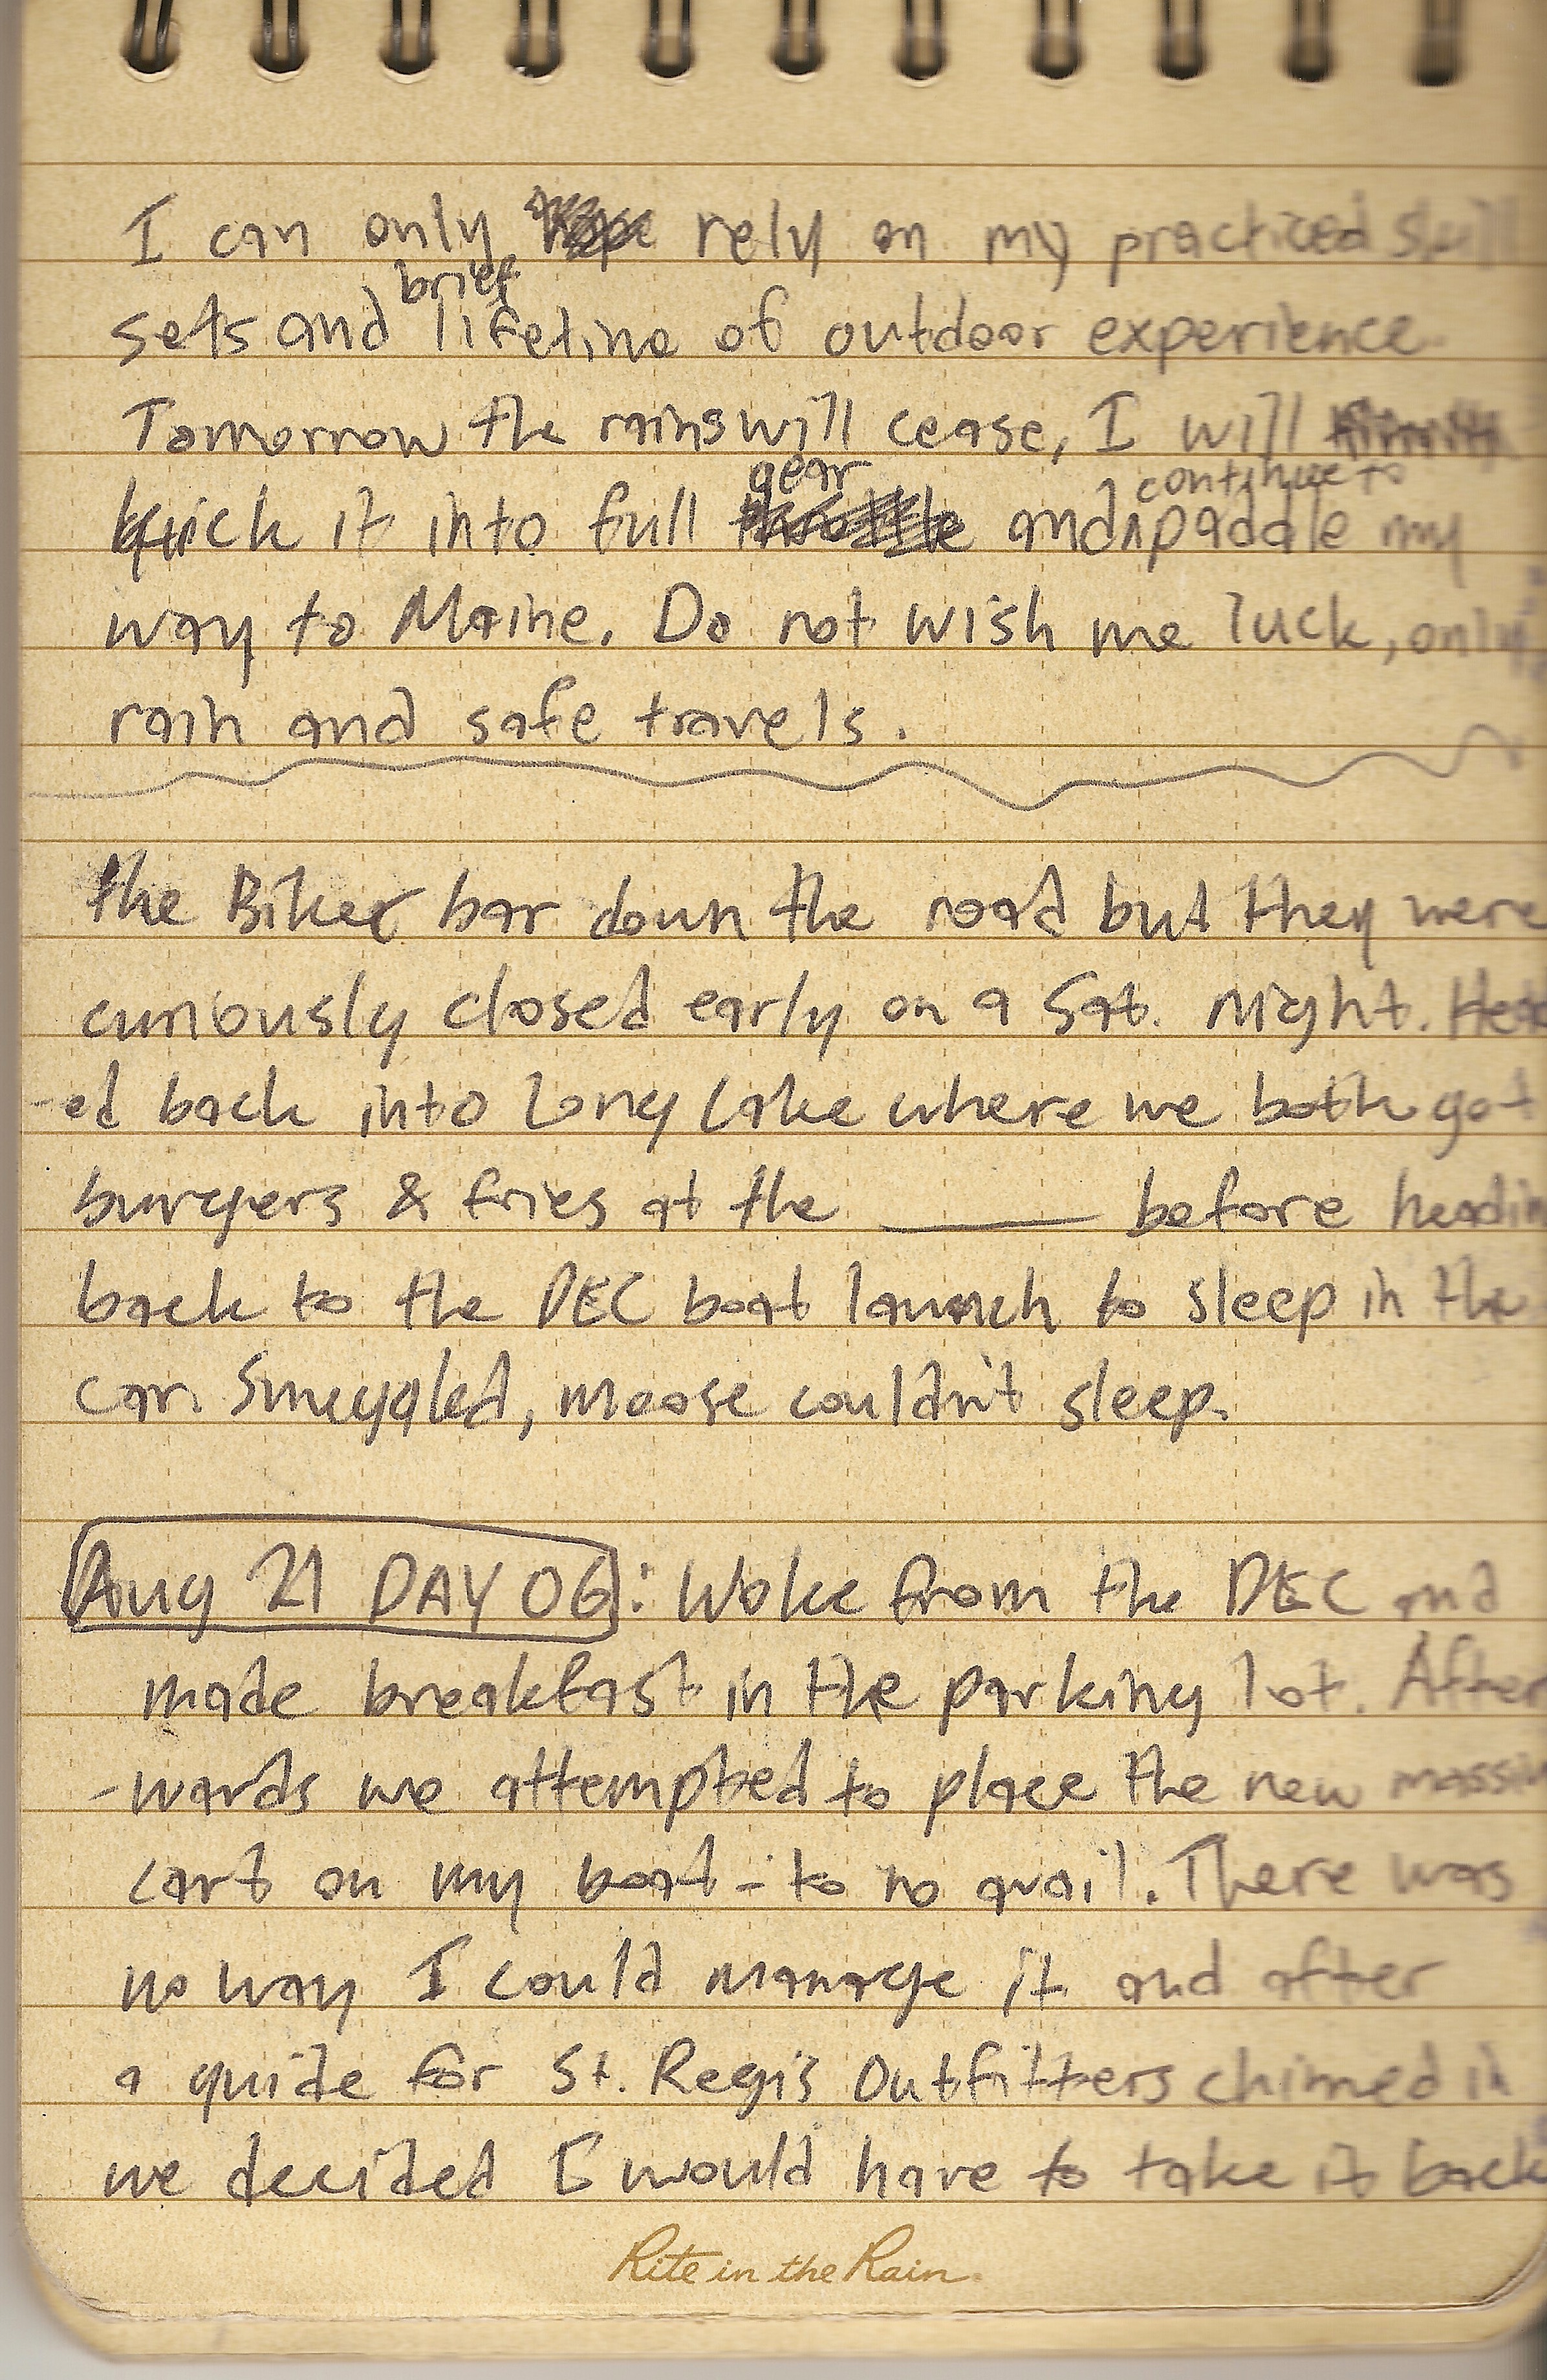 I can only rely on my practiced skill
brief
sets and lifetime of outdoor experience
Tomorrow the rains will cease, I will
gear continue to
kick it into full and paddle my
way to Maine. Do not wish me luck, only
rain and safe travels.
the Biker bar down the road but they were
curiously closed early on a Sat. Night. Head
-ed back into Long Lake where we both got
burgers & fries at the ______ before headin
back to the DEC boat launch to sleep in the
car. Smuggled, moose couldn't sleep.
Aug 21 DAY 06: Woke from the DEC and
made breakfast in the parking lot. After
-wards we attempted to place the new massiv
cart on my boat - to no avail. There was
no way I could manage it and after
a guide for St. Regis Outfitters chimed in
we decided I would have to take it back
Rite in the Rain